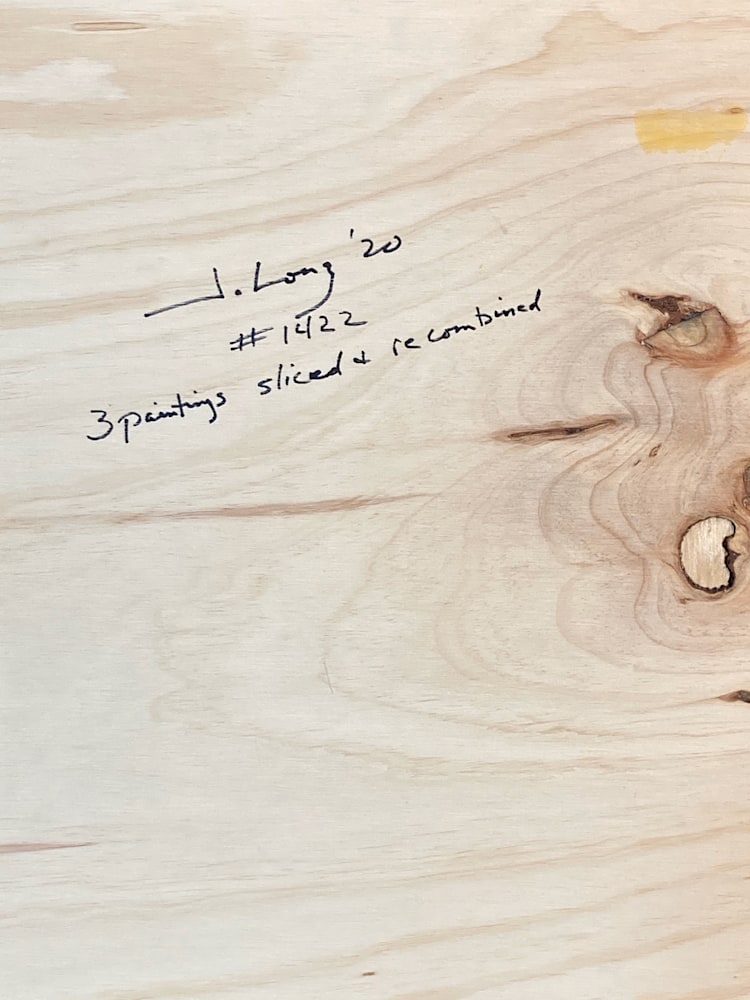 J. Long '20
#1422
3 paintings sliced + recombined